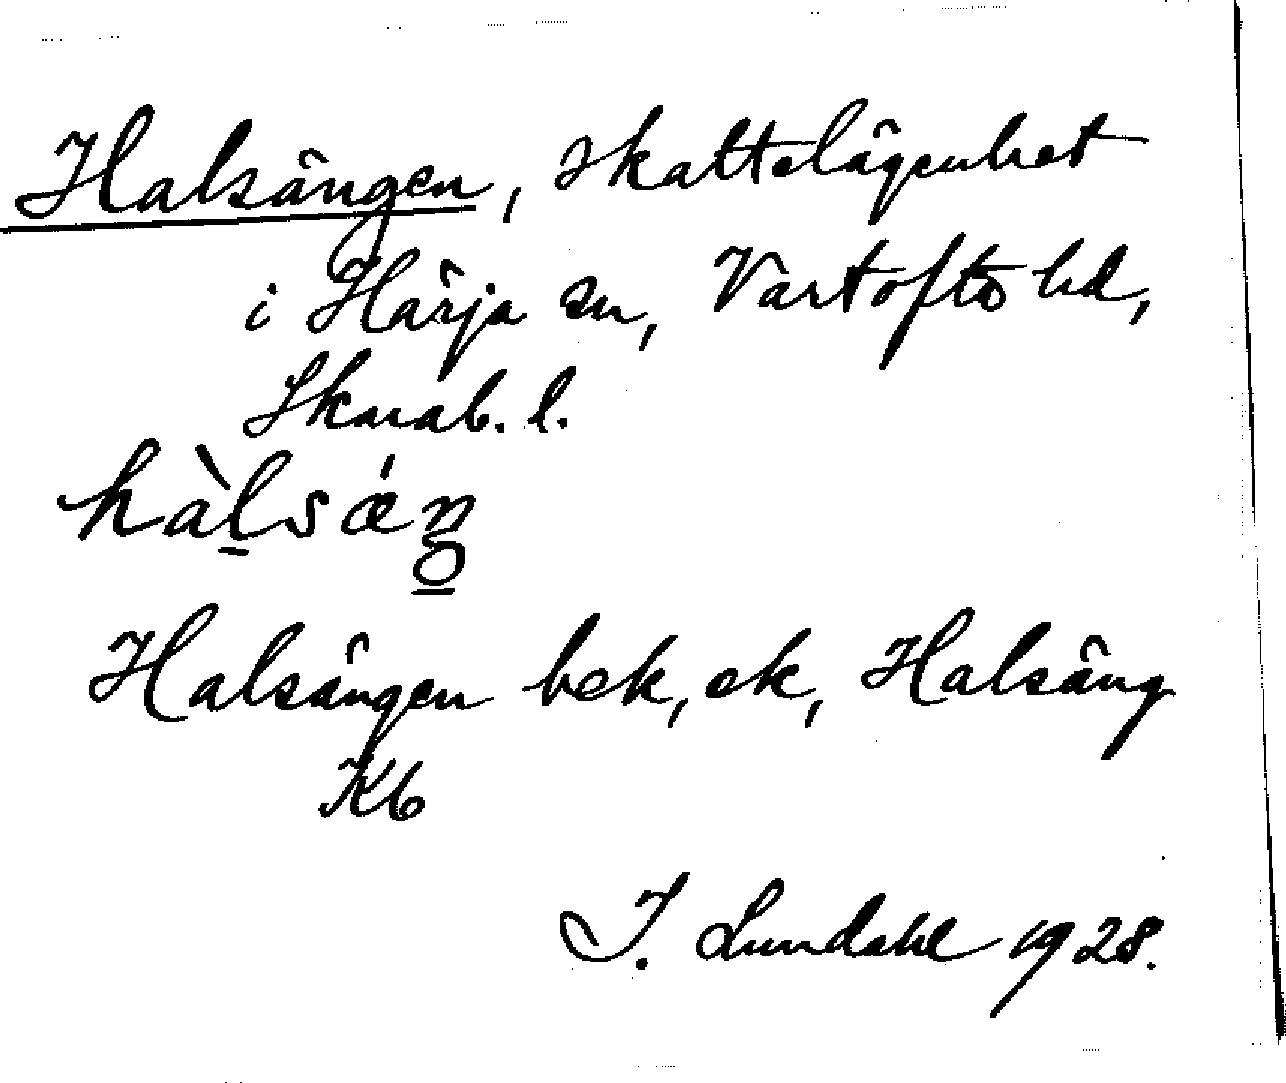 Halsängen, skattelägenhet
i Härja sn, Vartofta hd,
Skarab. l.
hàl̠sáŋ̠
Halsängen bek, ek, Halsäng
Kb
I. Lundahl 1928.